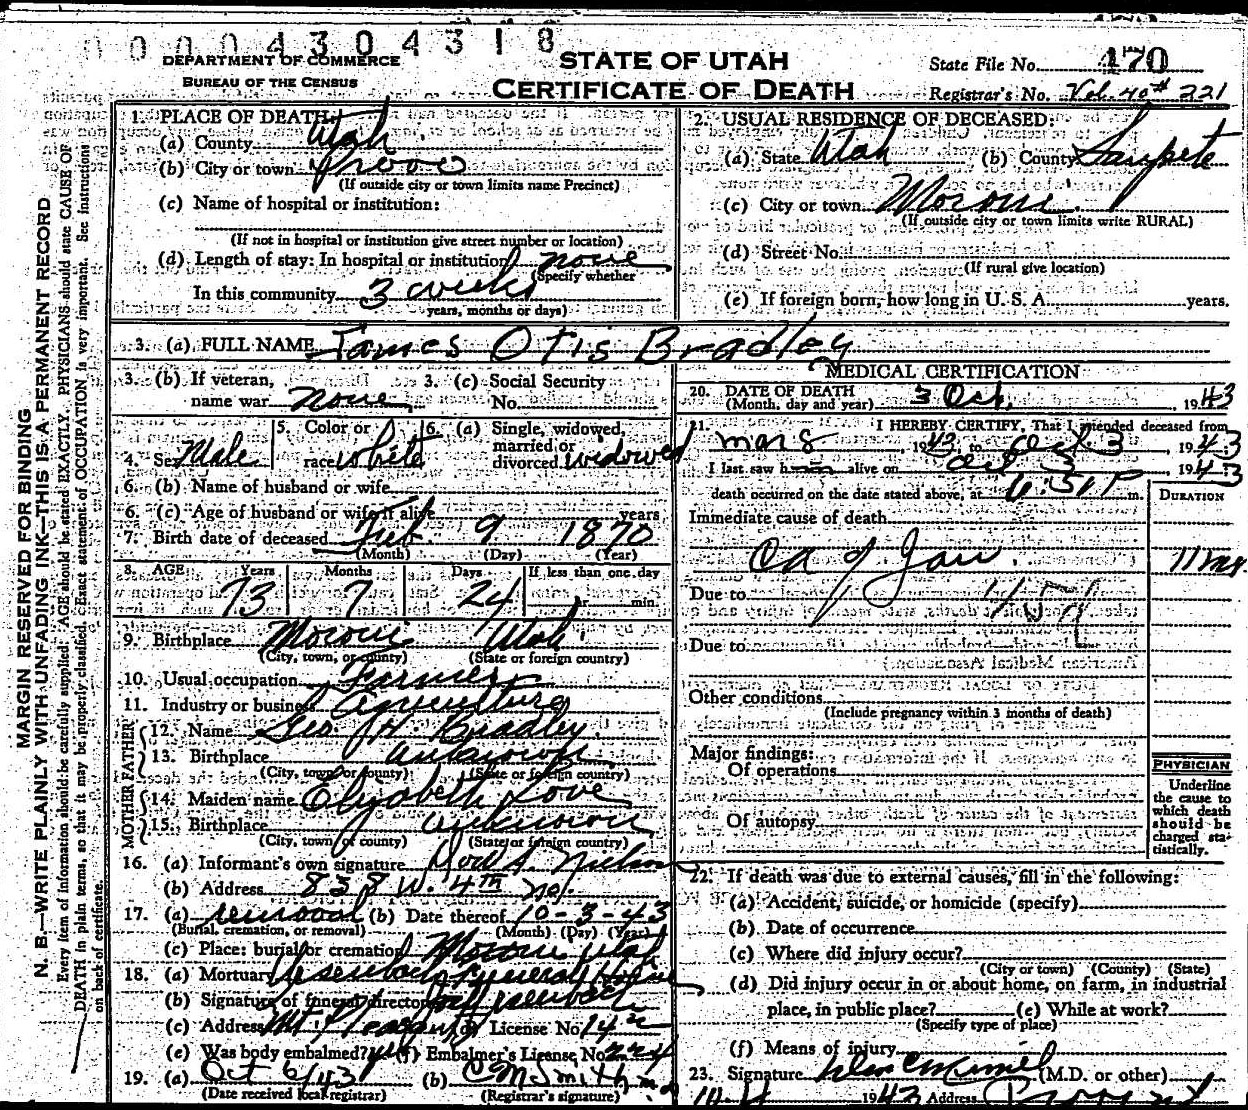 0 0 0 0 4 3 0 4 3 1 8
DEPARTMENT OF COMMERCE
BUREAU OF THE CENSUS
STATE OF UTAH
CERTIFICATE OF DEATH
State File No. 170
Registrar's No. Vol. 40 # 221
MARGIN RESERVED FOR BINDING
N. B.—WRITE PLAINLY WITH UNFADING INK—THIS IS A PERMANENT RECORD
Every item of information should be carefully supplied. AGE should be stated EXACTLY. PHYSICIANS should state CAUSE OF
DEATH in plain terms, so that it may be properly classified. Exact statement of OCCUPATION is very important. See instructions
on back of certificate.
1. PLACE OF DEATH:
(a) County Utah
(b) City or town Provo
(If outside city or town limits name Precinct)
(c) Name of hospital or institution:
(If not in hospital or institution give street number or location)
(d) Length of stay: In hospital or institution none
(Specify whether
In this community 3 weeks
years, months or days)
2. USUAL RESIDENCE OF DECEASED:
(a) State Utah (b) County Sanpete
(c) City or town Moroni
(If outside city or town limits write RURAL)
(d) Street No.
(If rural give location)
(e) If foreign born, how long in U. S. A. years.
3. (a) FULL NAME James Otis Bradley
3. (b) If veteran,
name war none
3. (c) Social Security
No.
4. Sex Male
5. Color or
race white
6. (a) Single, widowed,
married or
divorced widowed
6. (b) Name of husband or wife
6. (c) Age of husband or wife if alive years
7. Birth date of deceased Feb. 9 1870
(Month) (Day) (Year)
8. AGE Years Months Days If less than one day
73 7 24 min.
9. Birthplace Moroni Utah
(City, town, or county) (State or foreign country)
10. Usual occupation Farmer
11. Industry or business Agriculture
FATHER
12. Name Geo. H. Bradley
13. Birthplace unknown
(City, town or county) (State or foreign country)
MOTHER
14. Maiden name Elizabeth Love
15. Birthplace unknown
(City, town or county) (State or foreign country)
16. (a) Informant's own signature
(b) Address 838 W. 4TH No.
17. (a) removal (b) Date thereof 10-3-43
(Burial, cremation, or removal) (Month) (Day) (Year)
(c) Place: burial or cremation Moroni Utah
18. (a) Mortuary Funeral Home
(b) Signature of funeral director
(c) Address Mt. Pleasant (d) License No.
(e) Was body embalmed? yes (f) Embalmer's License No. 224
19. (a) Oct 6/43 (b) C M Smith m.d
(Date received local registrar) (Registrar's signature)
MEDICAL CERTIFICATION
20. DATE OF DEATH
(Month, day and year) 3 Oct. , 1943
21. I HEREBY CERTIFY, That I attended deceased from
mar 8 , 1943 to Oct 3 , 1943
I last saw him alive on Oct 3 , 1943
death occurred on the date stated above, at 6:51 P m.
DURATION
Immediate cause of death
Ca of Jaw.
Due to
Due to
Other conditions
(Include pregnancy within 3 months of death)
Major findings:
Of operations
Of autopsy
PHYSICIAN
Underline
the cause to
which death
should be
charged sta-
tistically.
22. If death was due to external causes, fill in the following:
(a) Accident, suicide, or homicide (specify)
(b) Date of occurrence
(c) Where did injury occur?
(City or town) (County) (State)
(d) Did injury occur in or about home, on farm, in industrial
place, in public place? (e) While at work?
(Specify type of place)
(f) Means of injury
23. Signature (M.D. or other)
1943 Address